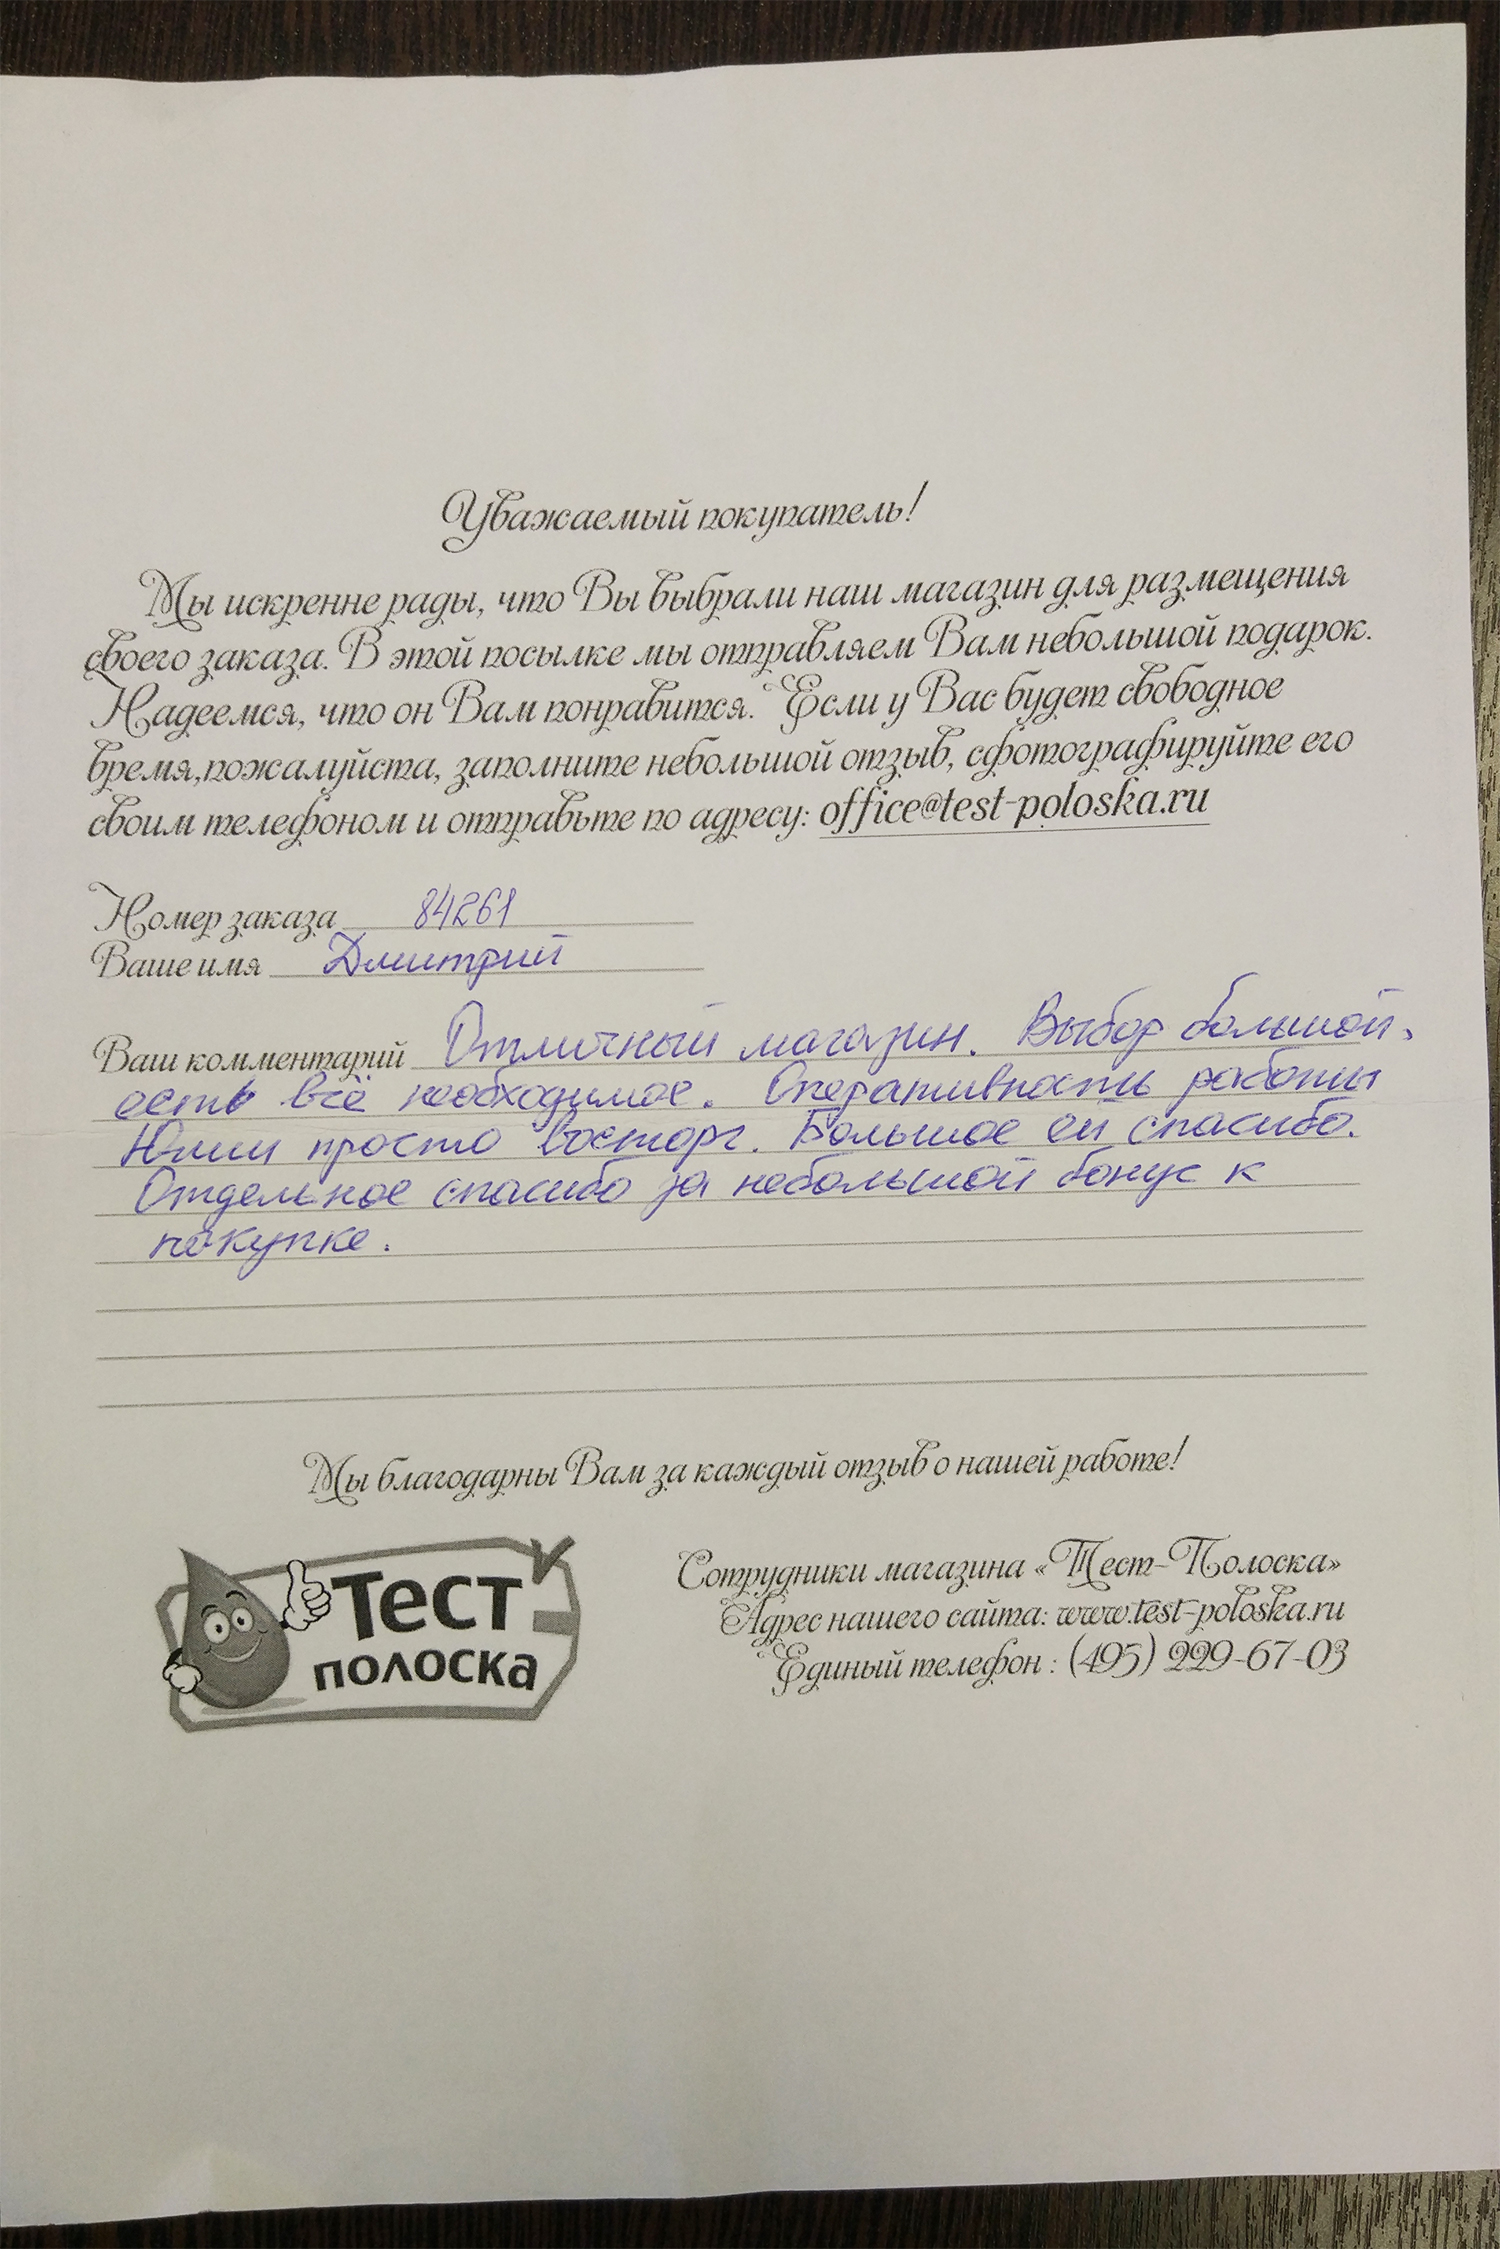 Уважаемый покупатель!
Мы искренне рады, что Вы выбрали наш магазин для размещения
своего заказа. В этой посылке мы отправляем Вам небольшой подарок.
Надеемся, что он Вам понравится. Если у Вас будет свободное
время,пожалуйста, заполните небольшой отзыв, сфотографируйте его
своим телефоном и отправьте по адресу: office@test-poloska.ru
Номер заказа 84261
Ваше имя Дмитрий
Ваш комментарий Отличный магазин. Выбор большой,
есть всё необходимое. Оперативность работы
Юлии просто восторг. Большое ей спасибо.
Отдельное спасибо за небольшой бонус к
покупке.
Мы благодарны Вам за каждый отзыв о нашей работе!
Тест
полоска
Сотрудники магазина «Тест-Полоска»
Адрес нашего сайта: www.test-poloska.ru
Единый телефон : (495) 229-67-03